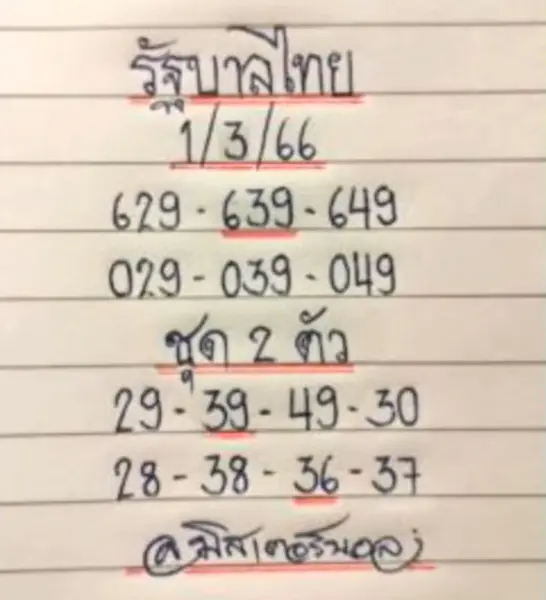 รัฐบาลไทย
1/3/66
629 - 639 - 649
029 - 039 - 049
ชุด 2 ตัว
29 - 39 - 49 - 30
28 - 38 - 36 - 37
อ.มิสเตอร์บอล